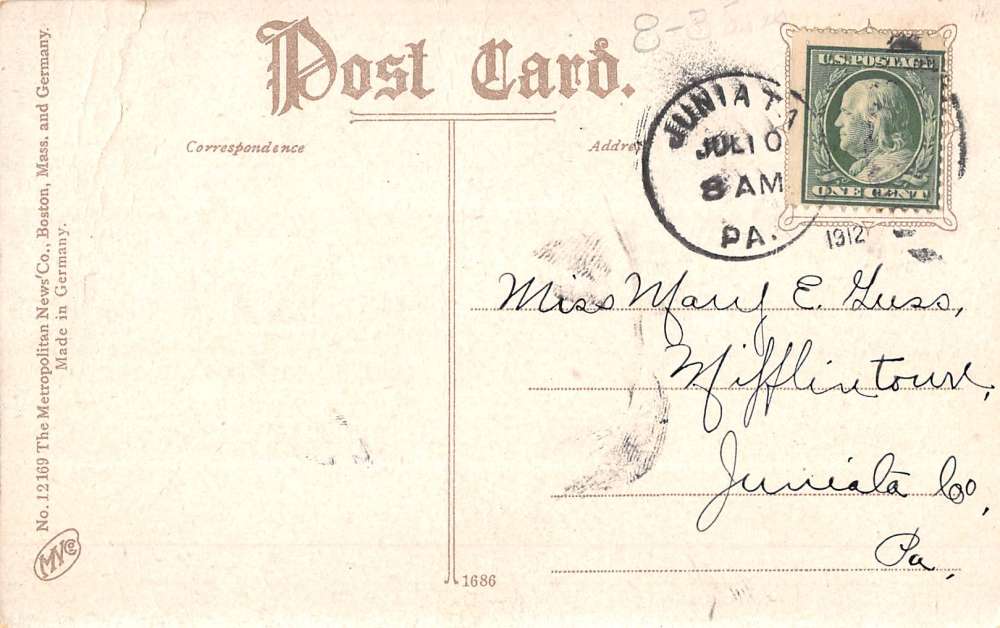 8-3
Post Card.
Correspondence
Addre
JUNIATA
JUL 10
8 AM
PA.
1912
U.S. POSTAGE
ONE CENT
Miss Mary E. Guss,
Mifflintown,
Juniata Co,
Pa,
No. 12169 The Metropolitan News Co., Boston, Mass. and Germany.
Made in Germany.
MNCo
1686